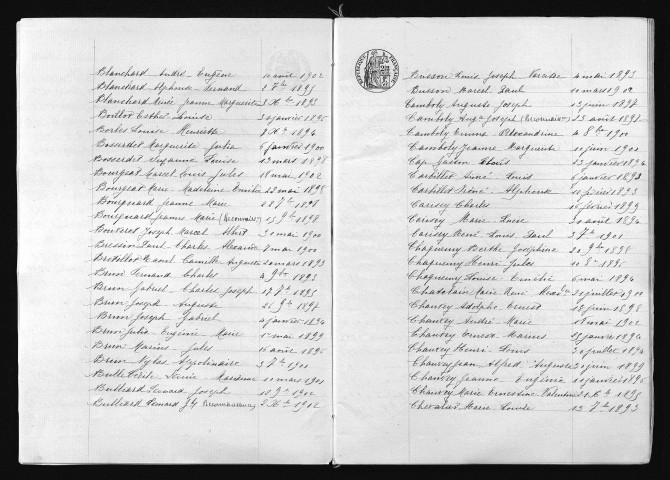 Blanchard André Eugène 10 avril 1902
Blanchard Alphonse Fernand 2 7bre 1895
Blanchard Renée Jeanne Marguerite 3 Xbre 1893
Boillot Esther Louise 30 janvier 1895
Bordes Louise Henriette 7 Xbre 1894
Bosserdet Marguerite Julia 6 janvier 1900
Bosserdet Suzanne Louise 13 mars 1898
Bourgeat Marcel Louis Jules 18 mai 1902
Bourgeat Marie Madeleine Emilie 22 mai 1898
Bourquard Jeanne Marie 28 7bre 1898
Bourquard Jeanne Marie (Reconnaiss) 15 9bre 1898
Bouteret Joseph Marcel Albert 31 mai 1900
Bression Paul Charles Alexandre 8 mai 1900
Bretillot Raoul Camille Auguste 20 mars 1893
Brun Fernand Charles 4 9bre 1893
Brun Gabriel Charles Joseph 17 7bre 1895
Brun Joseph Auguste 26 9bre 1897
Brun Joseph Gabriel janvier 1894
Brun Julia Eugénie Marie 1er mai 1899
Brun Marius Jules 10 avril 1895
Brun Apolinaire 3 7bre 1900
Louise 10 mars 1901
Bulliard Fernand Joseph 10 9bre 1902
Bulliard Fernand J (Reconnaissance) 2 Xbre 1902
RÉPUBLIQUE FRANÇAISE
Buisson Louis Joseph 4 mai 1893
Busson Marcel Paul 10 mars 1902
Camboly Auguste Joseph 13 juin 1897
Camboly Augte Joseph (Reconnaiss) 23 août 1897
Camboly Emma Alexandrine 4 8bre 1900
Camboly Jeanne Marguerite 10 juin 1901
Cap Gaston Louis 23 janvier 1894
Carbillet Aimé Louis 6 janvier 1893
Carbillet Irène Alphonse 10 février 1893
Carisey Charles 10 février 1899
Carisey Marie Luce 30 août 1894
Carisey René Louis Paul 3 7bre 1901
Chagueny Berthe Joséphine 20 9bre 1898
Chagueny Henri Jules 10 8bre 1895
Chagueny Louise 6 mai 1894
Chatelain Marie René 20 juillet 1900
Chauvey Adolphe Ernest 18 juin 1898
Chauvey André Marie 18 mai 1902
Chauvey Ernest Marius 25 janvier 1894
Chauvey Henri Louis 30 juillet 1894
Chauvey Jean Alfred Auguste 30 juin 1899
Chauvey Jeanne Eugénie 10 janvier 1895
Chauvey Marie Ernestine Valentine 1er Xbre 1895
Chevalier Marie Louise 12 7bre 1893